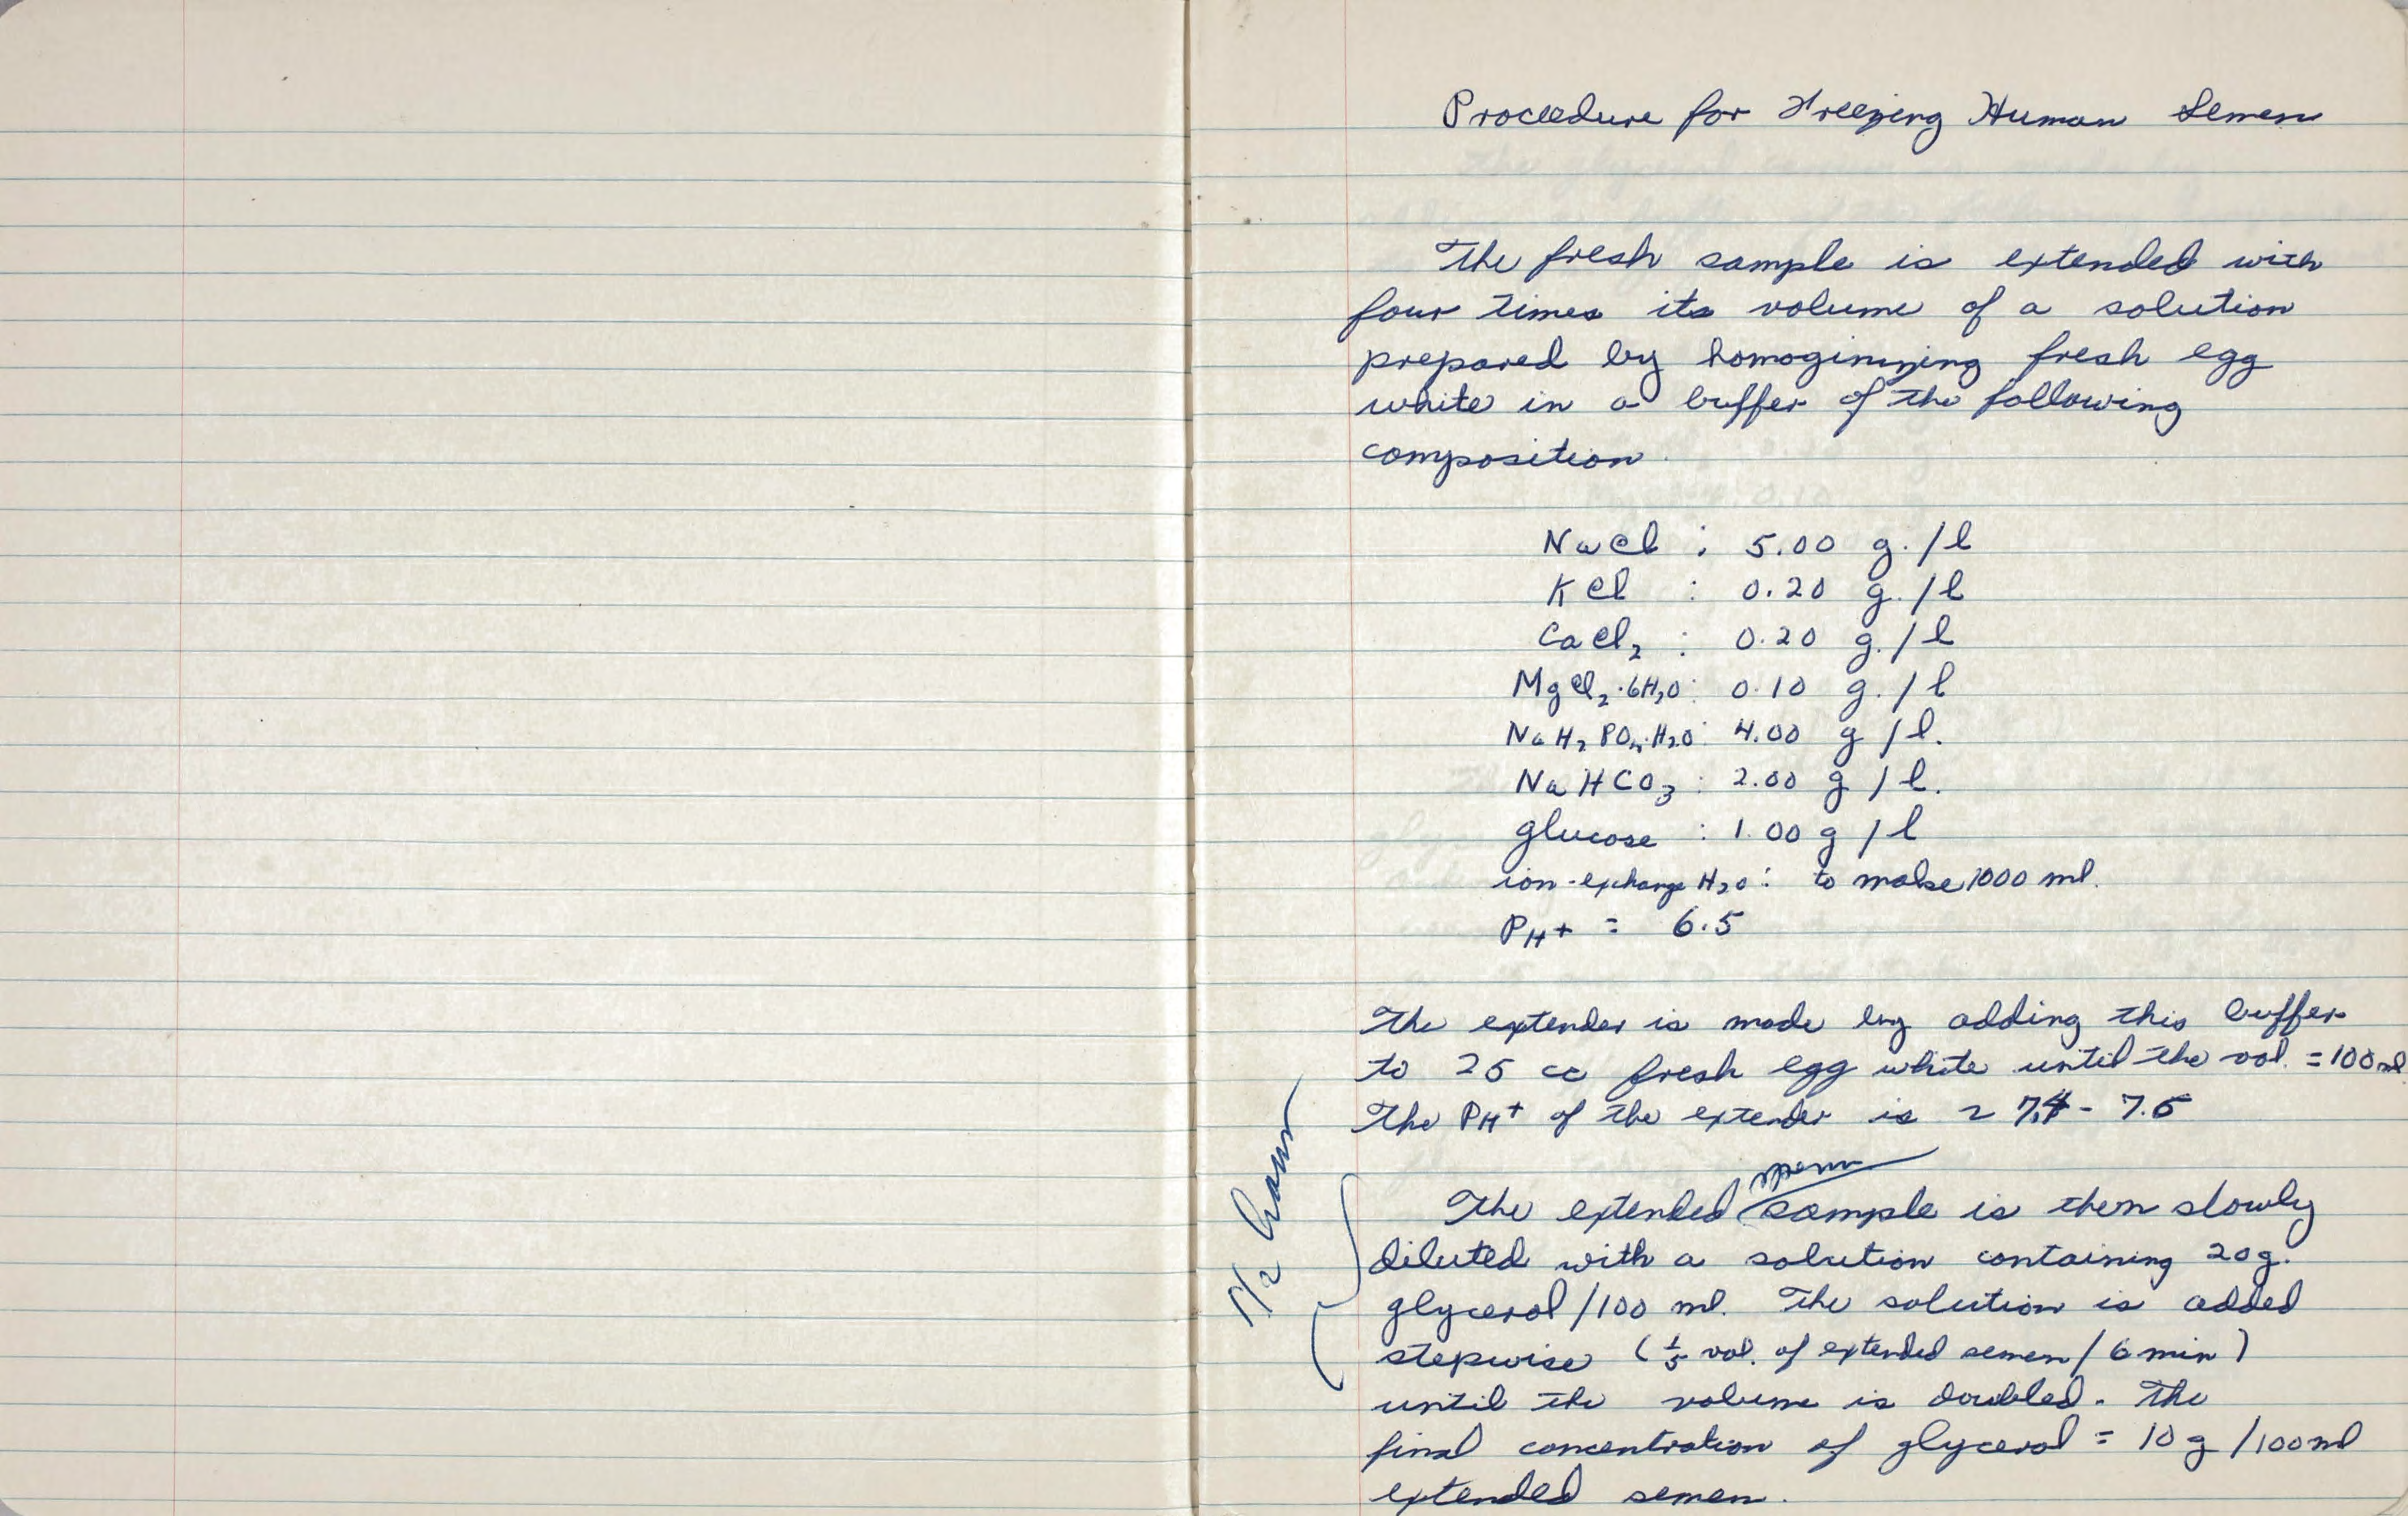 Proceedure for Freezing Human Semen
The fresh sample is extended with
four times its volume of a solution
prepared by homoginizing fresh egg
white in a buffer of the following
composition.
NaCl : 5.00 g./l
KCl : 0.20 g./l
CaCl₂ : 0.20 g./l
MgCl₂·6H₂O: 0.10 g./l
NaH₂PO₄·H₂O: 4.00 g/l.
NaHCO₃ : 2.00 g/l.
glucose : 1.00 g/l
ion-exchange H₂O: to make 1000 ml.
PH+ = 6.5
The extender is made by adding this buffer
to 25 cc fresh egg white until the vol. = 100 ml
The PH+ of the extender is ~ 7.4 - 7.5
sperm
The extended sample is then slowly
diluted with a solution containing 20g.
glycerol/100 ml. The solution is added
stepwise (⅕ vol. of extended semen/6 min)
until the volume is doubled. The
final concentration of glycerol = 10 g/100 ml
extended semen.
1/2 hour